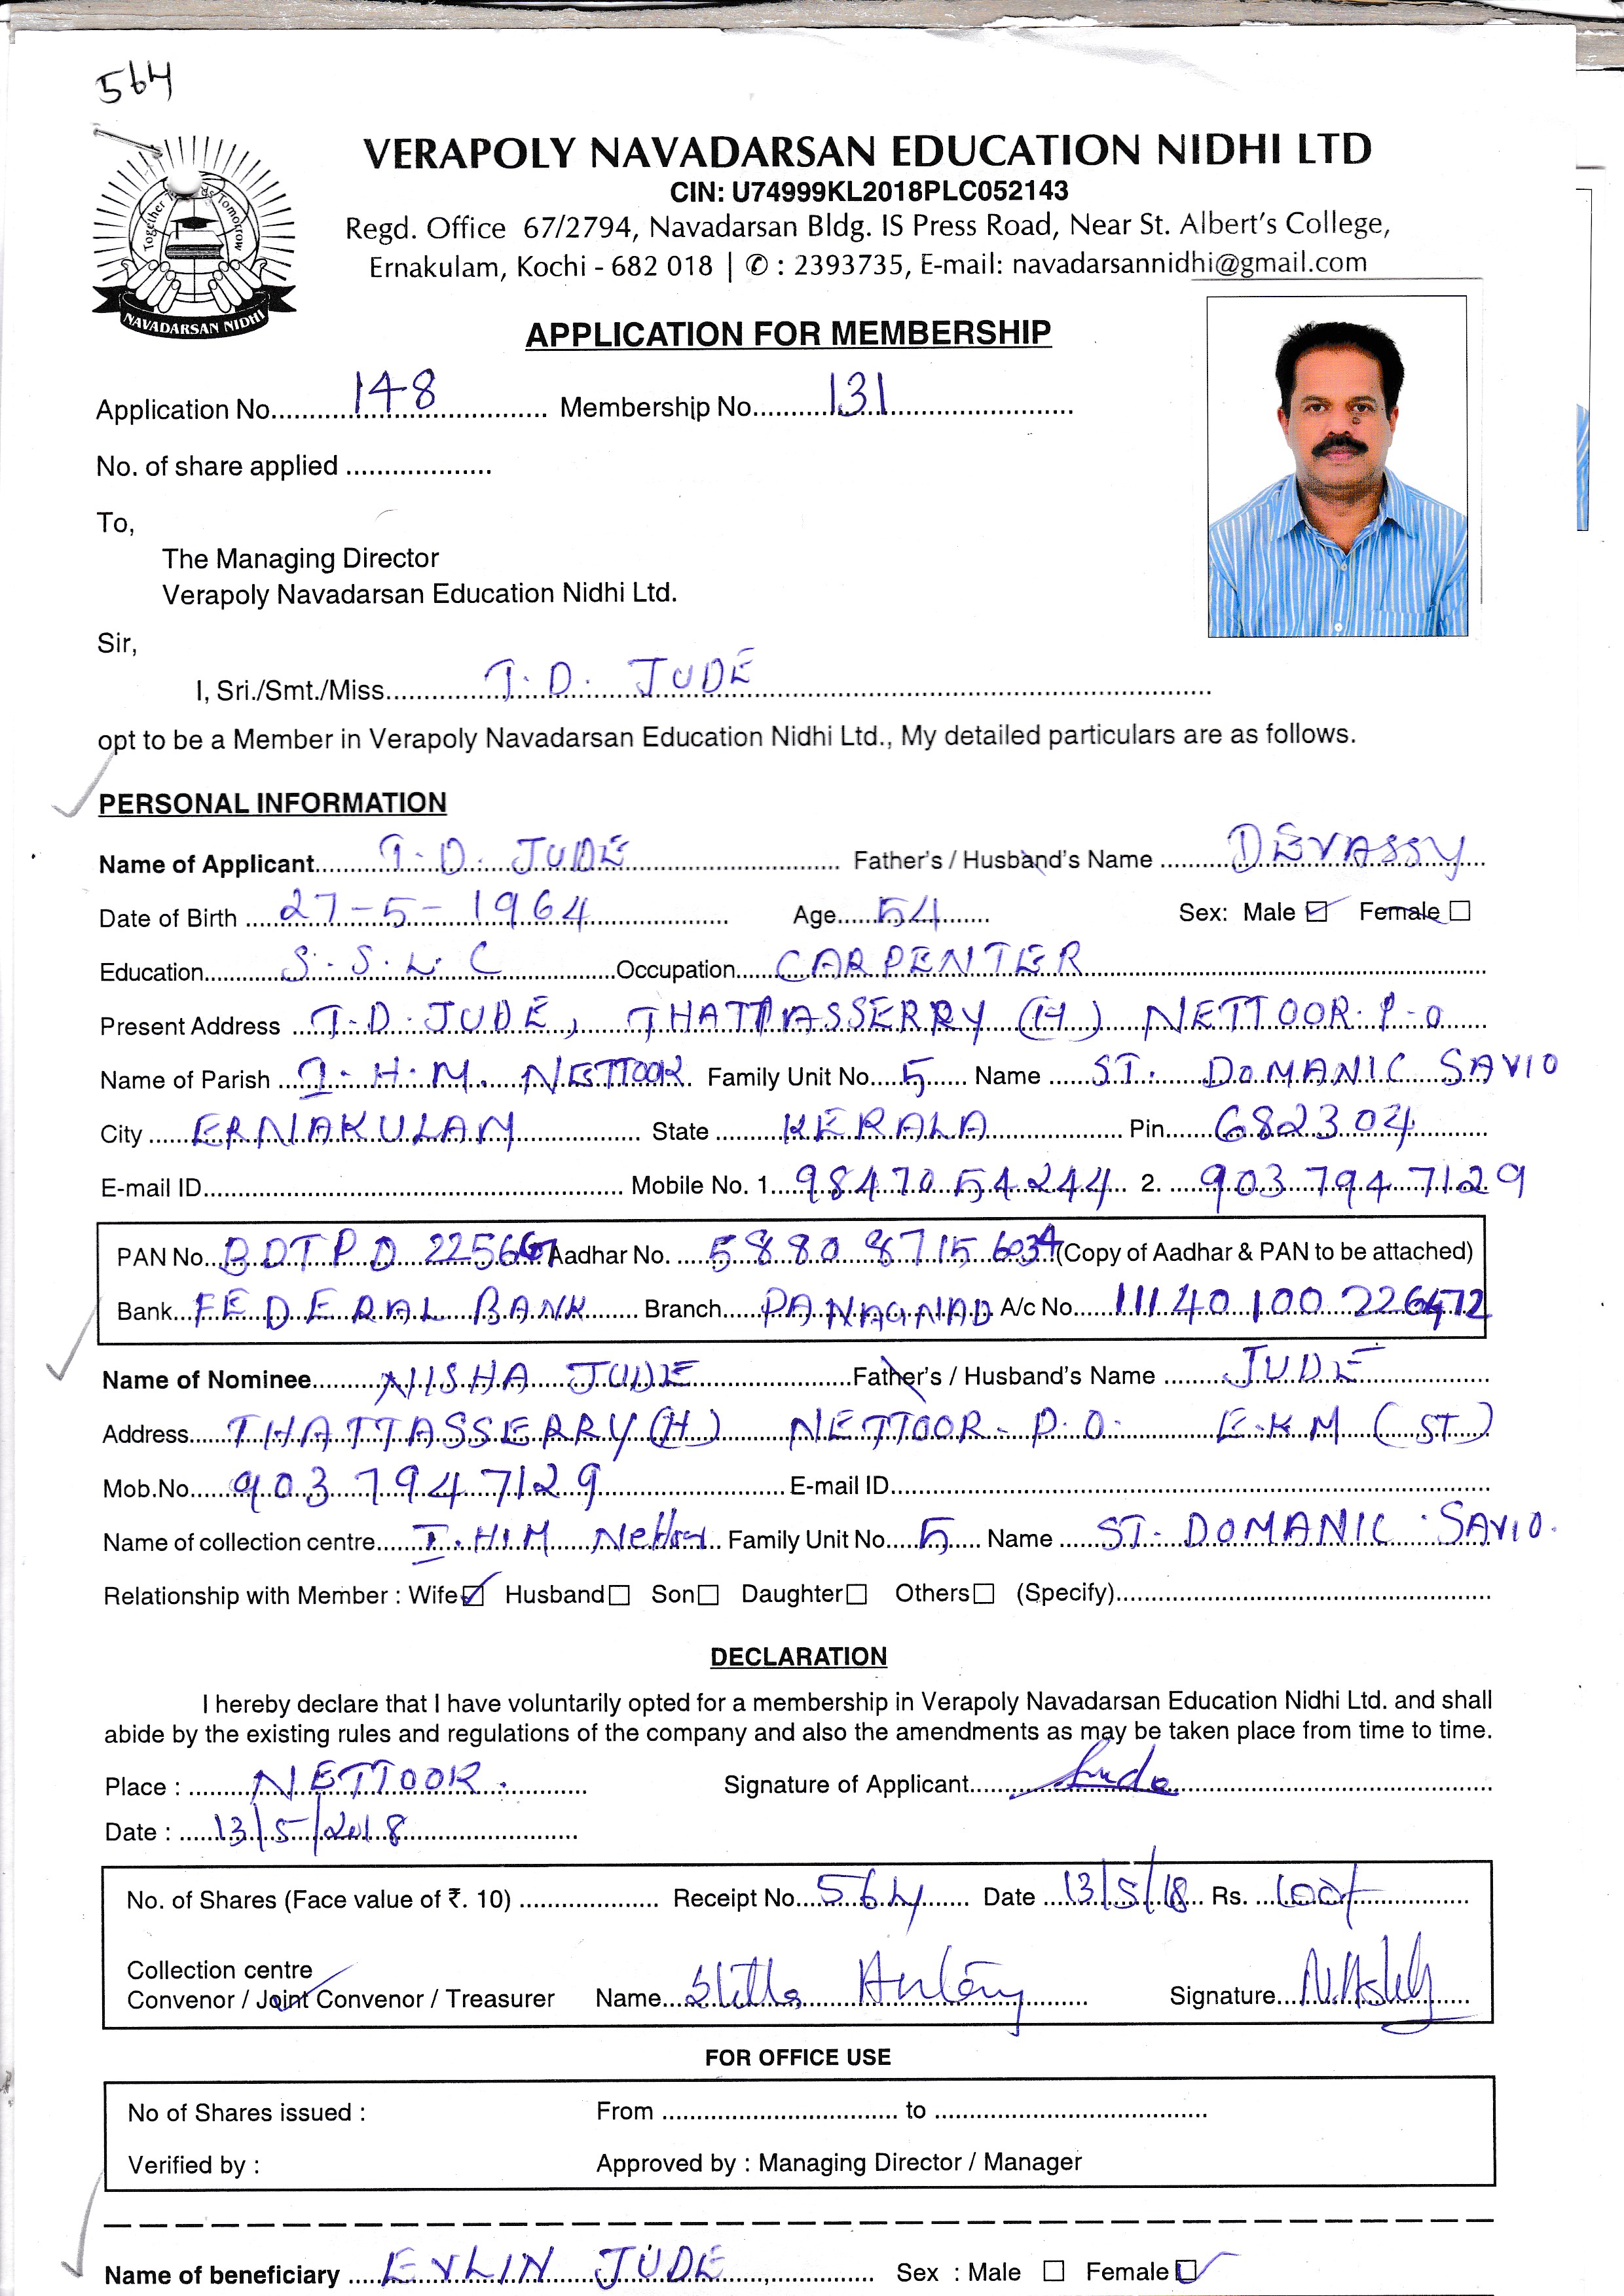 564
VERAPOLY NAVADARSAN EDUCATION NIDHI LTD
CIN: U74999KL2018PLC052143
Regd. Office 67/2794, Navadarsan Bldg. IS Press Road, Near St. Albert's College,
Ernakulam, Kochi - 682 018 | ✆ : 2393735, E-mail: navadarsannidhi@gmail.com
Together Tomorrow
NAVADARSAN NIDHI
APPLICATION FOR MEMBERSHIP
Application No. 148 Membership No. 131
No. of share applied
To,
The Managing Director
Verapoly Navadarsan Education Nidhi Ltd.
Sir,
I, Sri./Smt./Miss. T. D. JUDE
opt to be a Member in Verapoly Navadarsan Education Nidhi Ltd., My detailed particulars are as follows.
PERSONAL INFORMATION
Name of Applicant T. D. JUDE Father's / Husband's Name DEVASSY
Date of Birth 27-5-1964 Age 54 Sex: Male ☑ Female ☐
Education S.S.L.C Occupation CARPENTER
Present Address T.D. JUDE, THATTASSERRY (H) NETTOOR. P.O
Name of Parish I.H.M. NETTOOR. Family Unit No. 5 Name ST. DOMANIC SAVIO
City ERNAKULAM State KERALA Pin 682304
E-mail ID Mobile No. 1. 9847054244 2. 9037947129
PAN No. BDTPD 2256 Aadhar No. 5880 8715 6034 (Copy of Aadhar & PAN to be attached)
Bank FEDERAL BANK Branch PANAGNAD A/c No. 11140100226472
Name of Nominee NISHA JUDE Father's / Husband's Name JUDE
Address THATTASSERRY (H) NETTOOR. P.O. E.K.M (ST)
Mob.No. 9037947129 E-mail ID
Name of collection centre I.H.M Nettoor Family Unit No. 5 Name ST. DOMANIC SAVIO.
Relationship with Member : Wife ☑ Husband ☐ Son ☐ Daughter ☐ Others ☐ (Specify)
DECLARATION
I hereby declare that I have voluntarily opted for a membership in Verapoly Navadarsan Education Nidhi Ltd. and shall
abide by the existing rules and regulations of the company and also the amendments as may be taken place from time to time.
Place : NETTOOR. Signature of Applicant Jude
Date : 13/5/2018
No. of Shares (Face value of ₹. 10) Receipt No. 564 Date 13/5/18 Rs. 100/-
Collection centre
Convenor / Joint Convenor / Treasurer Name Stella Antony Signature
FOR OFFICE USE
No of Shares issued : From to
Verified by : Approved by : Managing Director / Manager
Name of beneficiary EVLIN JUDE Sex : Male ☐ Female ☑